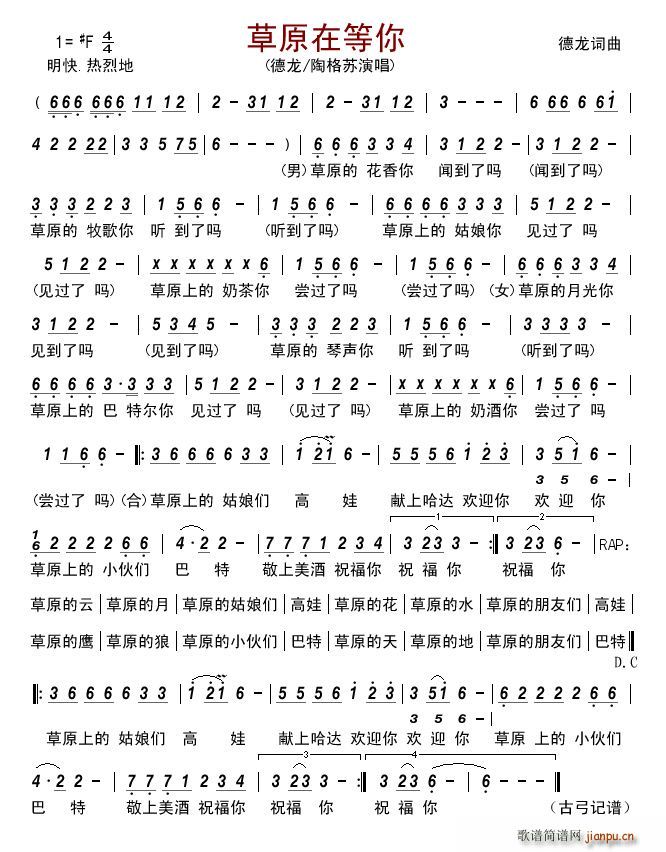 草原在等你
1=#F 4/4 德龙词曲
明快.热烈地 (德龙/陶格苏演唱)
( 666 666 11 12 | 2 - 31 12 | 2 - 31 12 | 3 - - - | 6 66 6 61 |
4 2 2 22 | 3 3 5 75 | 6 - - - ) | 6 6 6 3 3 4 | 3 1 2 2 - | 3 1 2 2 - |
(男)草原的 花香你 闻到了吗 (闻到了吗)
3 3 3 2 2 3 | 1 5 6 6 - | 1 5 6 6 - | 6 6 6 6 3 3 4 | 3 1 2 2 - |
草原的 牧歌你 听 到了吗 (听到了吗) 草原上的 姑娘你 见过了 吗
5 1 2 2 - | x x x x x x 6 | 1 5 6 6 - | 1 5 6 6 - | 6 6 6 3 3 4 |
(见过了 吗) 草原上的 奶茶你 尝过了吗 (尝过了吗) (女)草原的月光你
3 1 2 2 - | 5 3 4 5 - | 3 3 3 2 2 3 | 1 5 6 6 - | 3 3 3 3 - |
见到了吗 (见到了吗) 草原的 琴声你 听 到了吗 (听到了吗)
6 6 6 6 3·3 3 3 | 5 1 2 2 - | 3 1 2 2 - | x x x x x x 6 | 1 5 6 6 - |
草原上的 巴 特尔你 见过了 吗 (见过了 吗) 草原上的 奶酒你 尝过了吗
1 1 6 6 - ‖: 3 6 6 6 6 3 3 | 1 21 6 - | 5 5 5 6 1 2 3 | 3 51 6 - |
3 5 6 -
(尝过了 吗) (合)草原上的 姑娘们 高 娃 献上哈达 欢迎你 欢 迎 你
1/6 2 2 2 2 6 6 | 4·2 2 - | 7 7 7 1 2 3 4 | 3 23 3 - :‖ 3 23 6 - | RAP:
草原上的 小伙们 巴 特 敬上美酒 祝福你 祝 福 你 祝福 你
草原的云|草原的月|草原的姑娘们|高娃|草原的花|草原的水|草原的朋友们|高娃|
草原的鹰|草原的狼|草原的小伙们|巴特|草原的天|草原的地|草原的朋友们|巴特‖
D.C
‖: 3 6 6 6 6 3 3 | 1 21 6 - | 5 5 5 6 1 2 3 | 3 51 6 - | 6 2 2 2 2 6 6 |
3 5 6 -
草原上的 姑娘们 高 娃 献上哈达 欢迎你 欢 迎 你 草原 上的 小伙们
4·2 2 - | 7 7 7 7 1 2 3 4 | 3 23 3 - :‖ 3 23 6 - | 6 - - - ‖
巴 特 敬上美酒 祝福你 祝福 你 祝 福 你 (古弓记谱)
歌谱简谱网
jianpu.cn